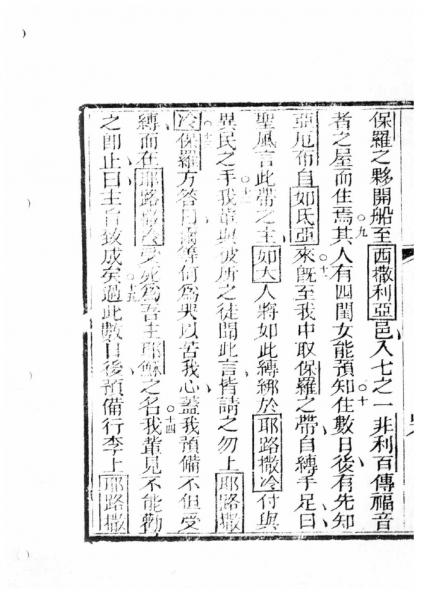 保羅之夥開船至西撒利亞邑入七之一非利百傳福音
者之屋而住焉其人有四閨女能預知住數日後有先知
亞厄布自如氏亞來既至我中取保羅之帶自縛手足曰
聖風言此帶之主如大人將如此縛綁於耶路撒冷付與
異民之手我輩與彼所之徒聞此言皆請之勿上耶路撒
冷保羅方答曰爾等何為哭以苦我心蓋我預備不但受
縛而在耶路撒冷受死為吾主耶穌之名我輩見不能勸
之即止曰主自致成矣過此數日後預備行李上耶路撒